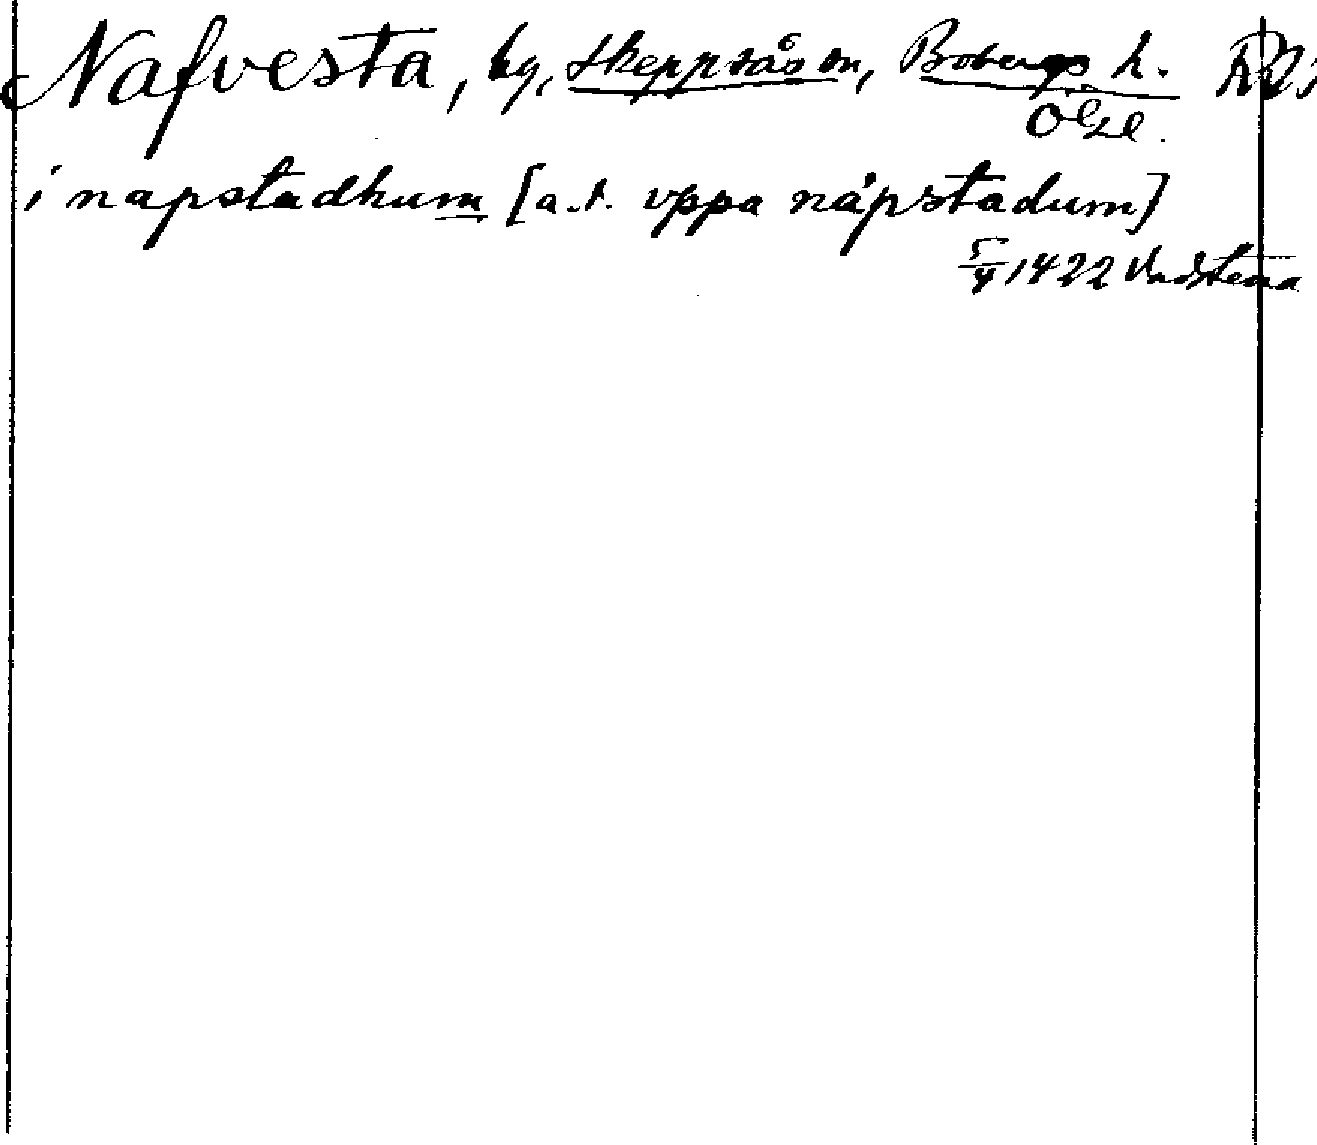 Nafvesta, by, Skeppsås sn, Bobergs h.
Ögl.
i napstadhum [a.t. vppa nápstadum]
5/4 1422 Vadstena